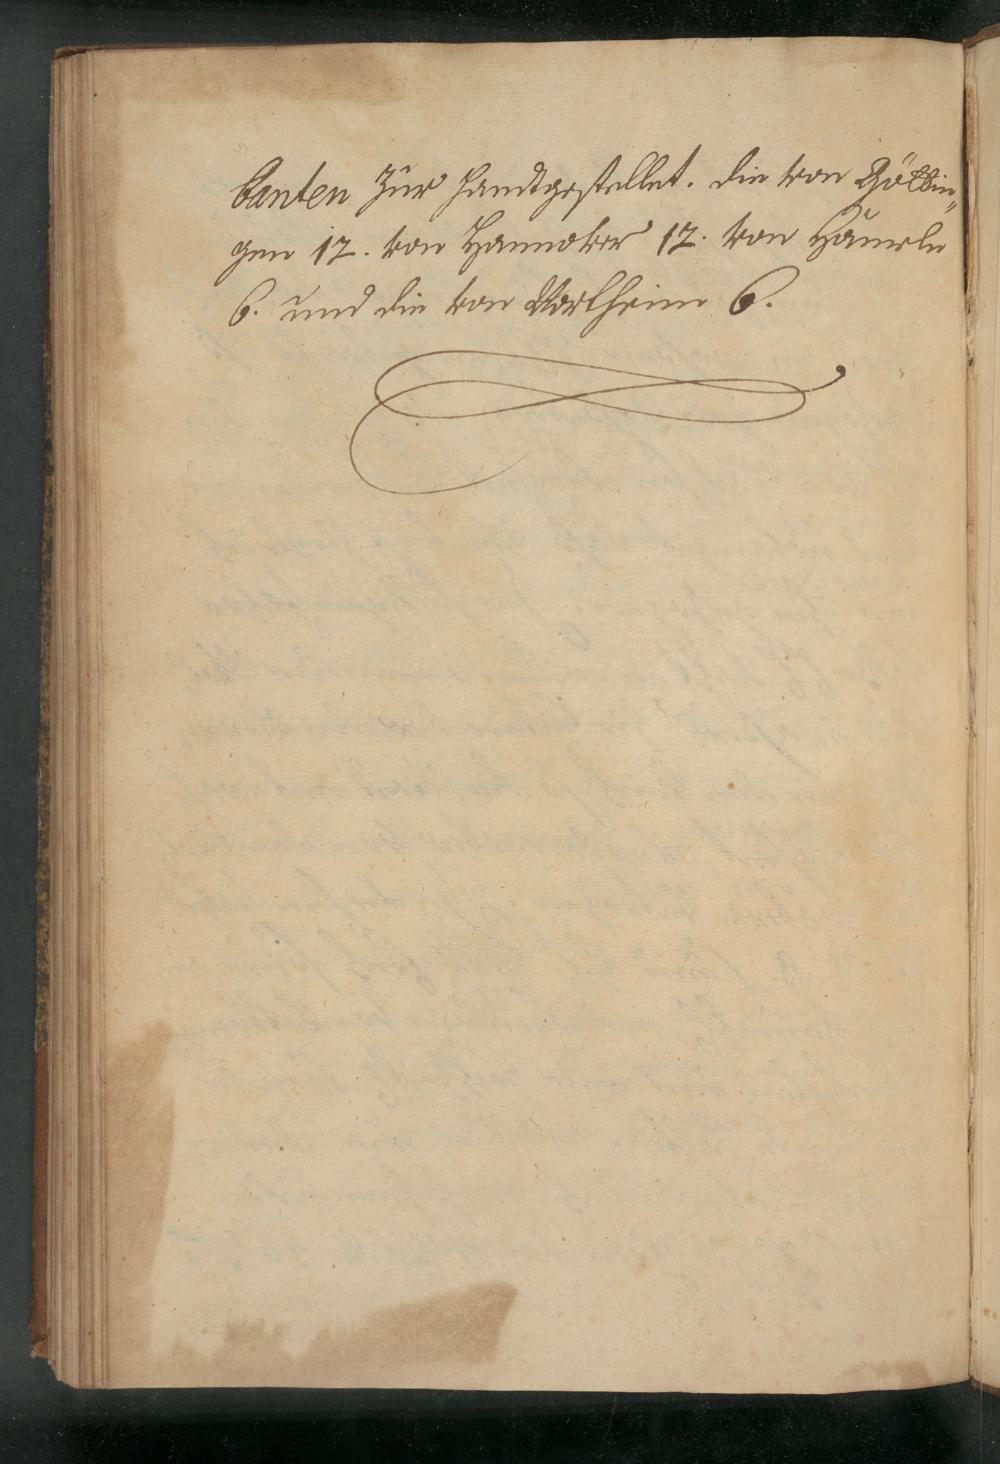 banten zur handtgestellet. die von Götti„
gen 12. von Hannover 12. von Hameln
6. und die von Northeim 6.